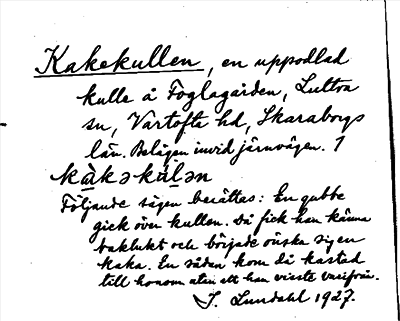 Kakekullen, en uppodlad
kulle å Foglagården, Luttra
sn, Vartofta hd, Skaraborgs
län. Belägen invid järnvägen. 1
kàkəkùlən
Följande sägen berättas: En gubbe
gick över kullen. Då fick han känna
baklukt och började önska sig en
kaka. En sådan kom då kastad
till honom utan att han visste varifrån.
J. Lundahl 1927.